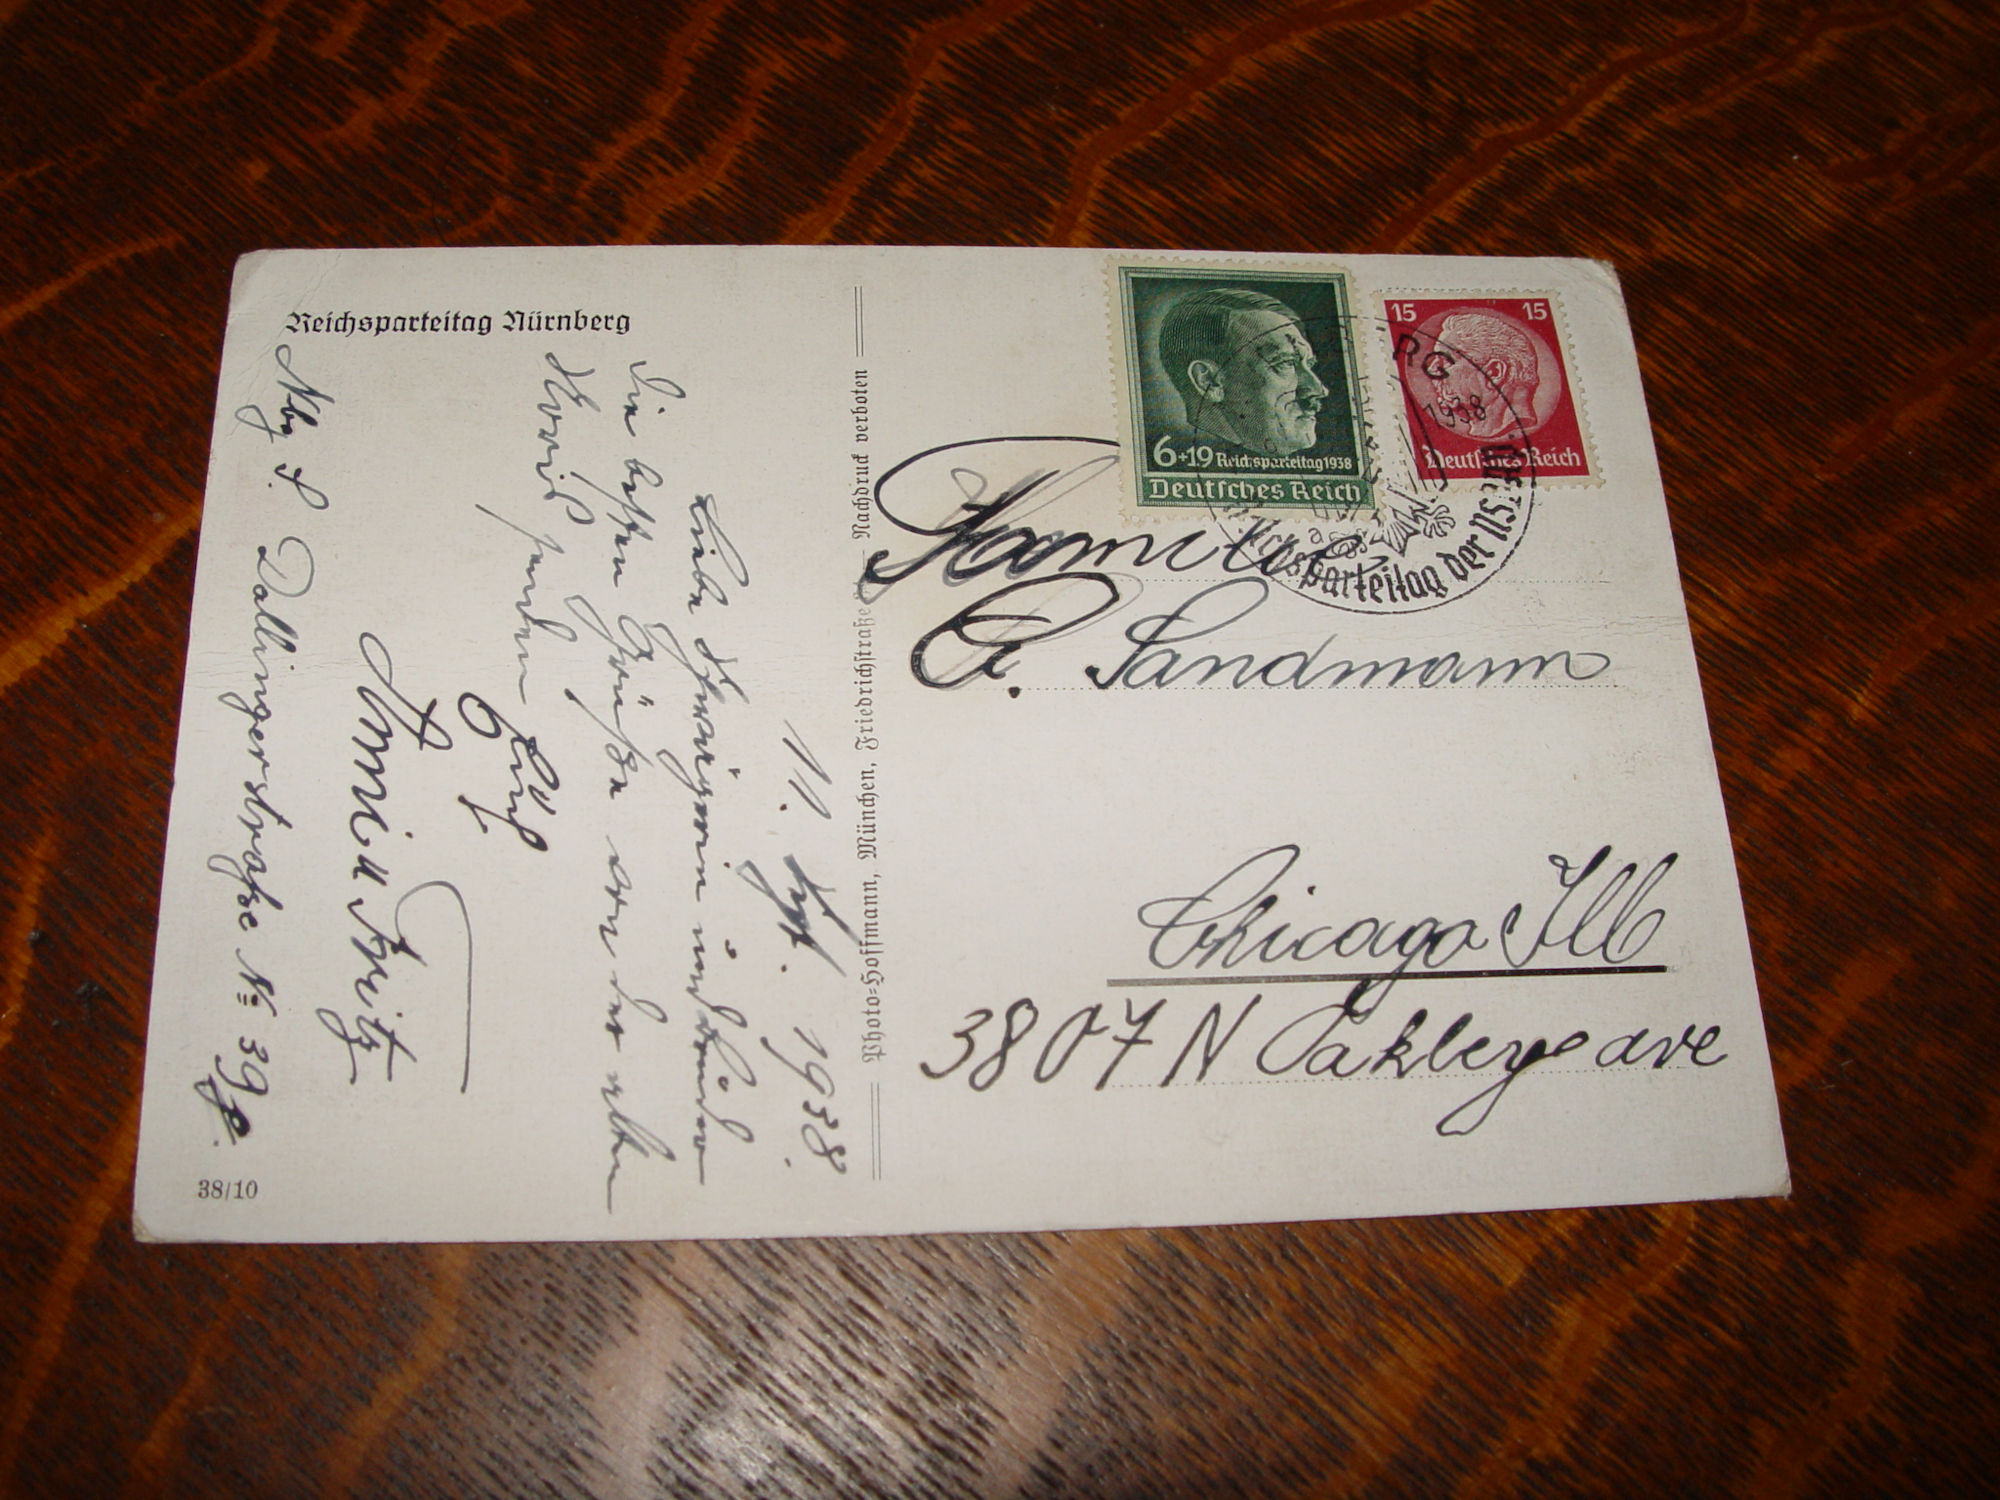 Reichsparteitag Nürnberg
11. Sept. 1938.
Liebe Schwägerin und Bruder
die besten Grüße von der alten
senden
Euch
Anni u Fritz
Nbg S. Dallingerstraße No 39
38/10
Photo-Hoffmann, München, Friedrichstraße Nachdruck verboten
6+19 Reichsparteitag 1938
Deutsches Reich
15 15
Deutsches Reich
RG
1938
a
Reichsparteitag der NSDAP
Familie
A. Sandmann
Chicago Ill
3807 N Oakley ave